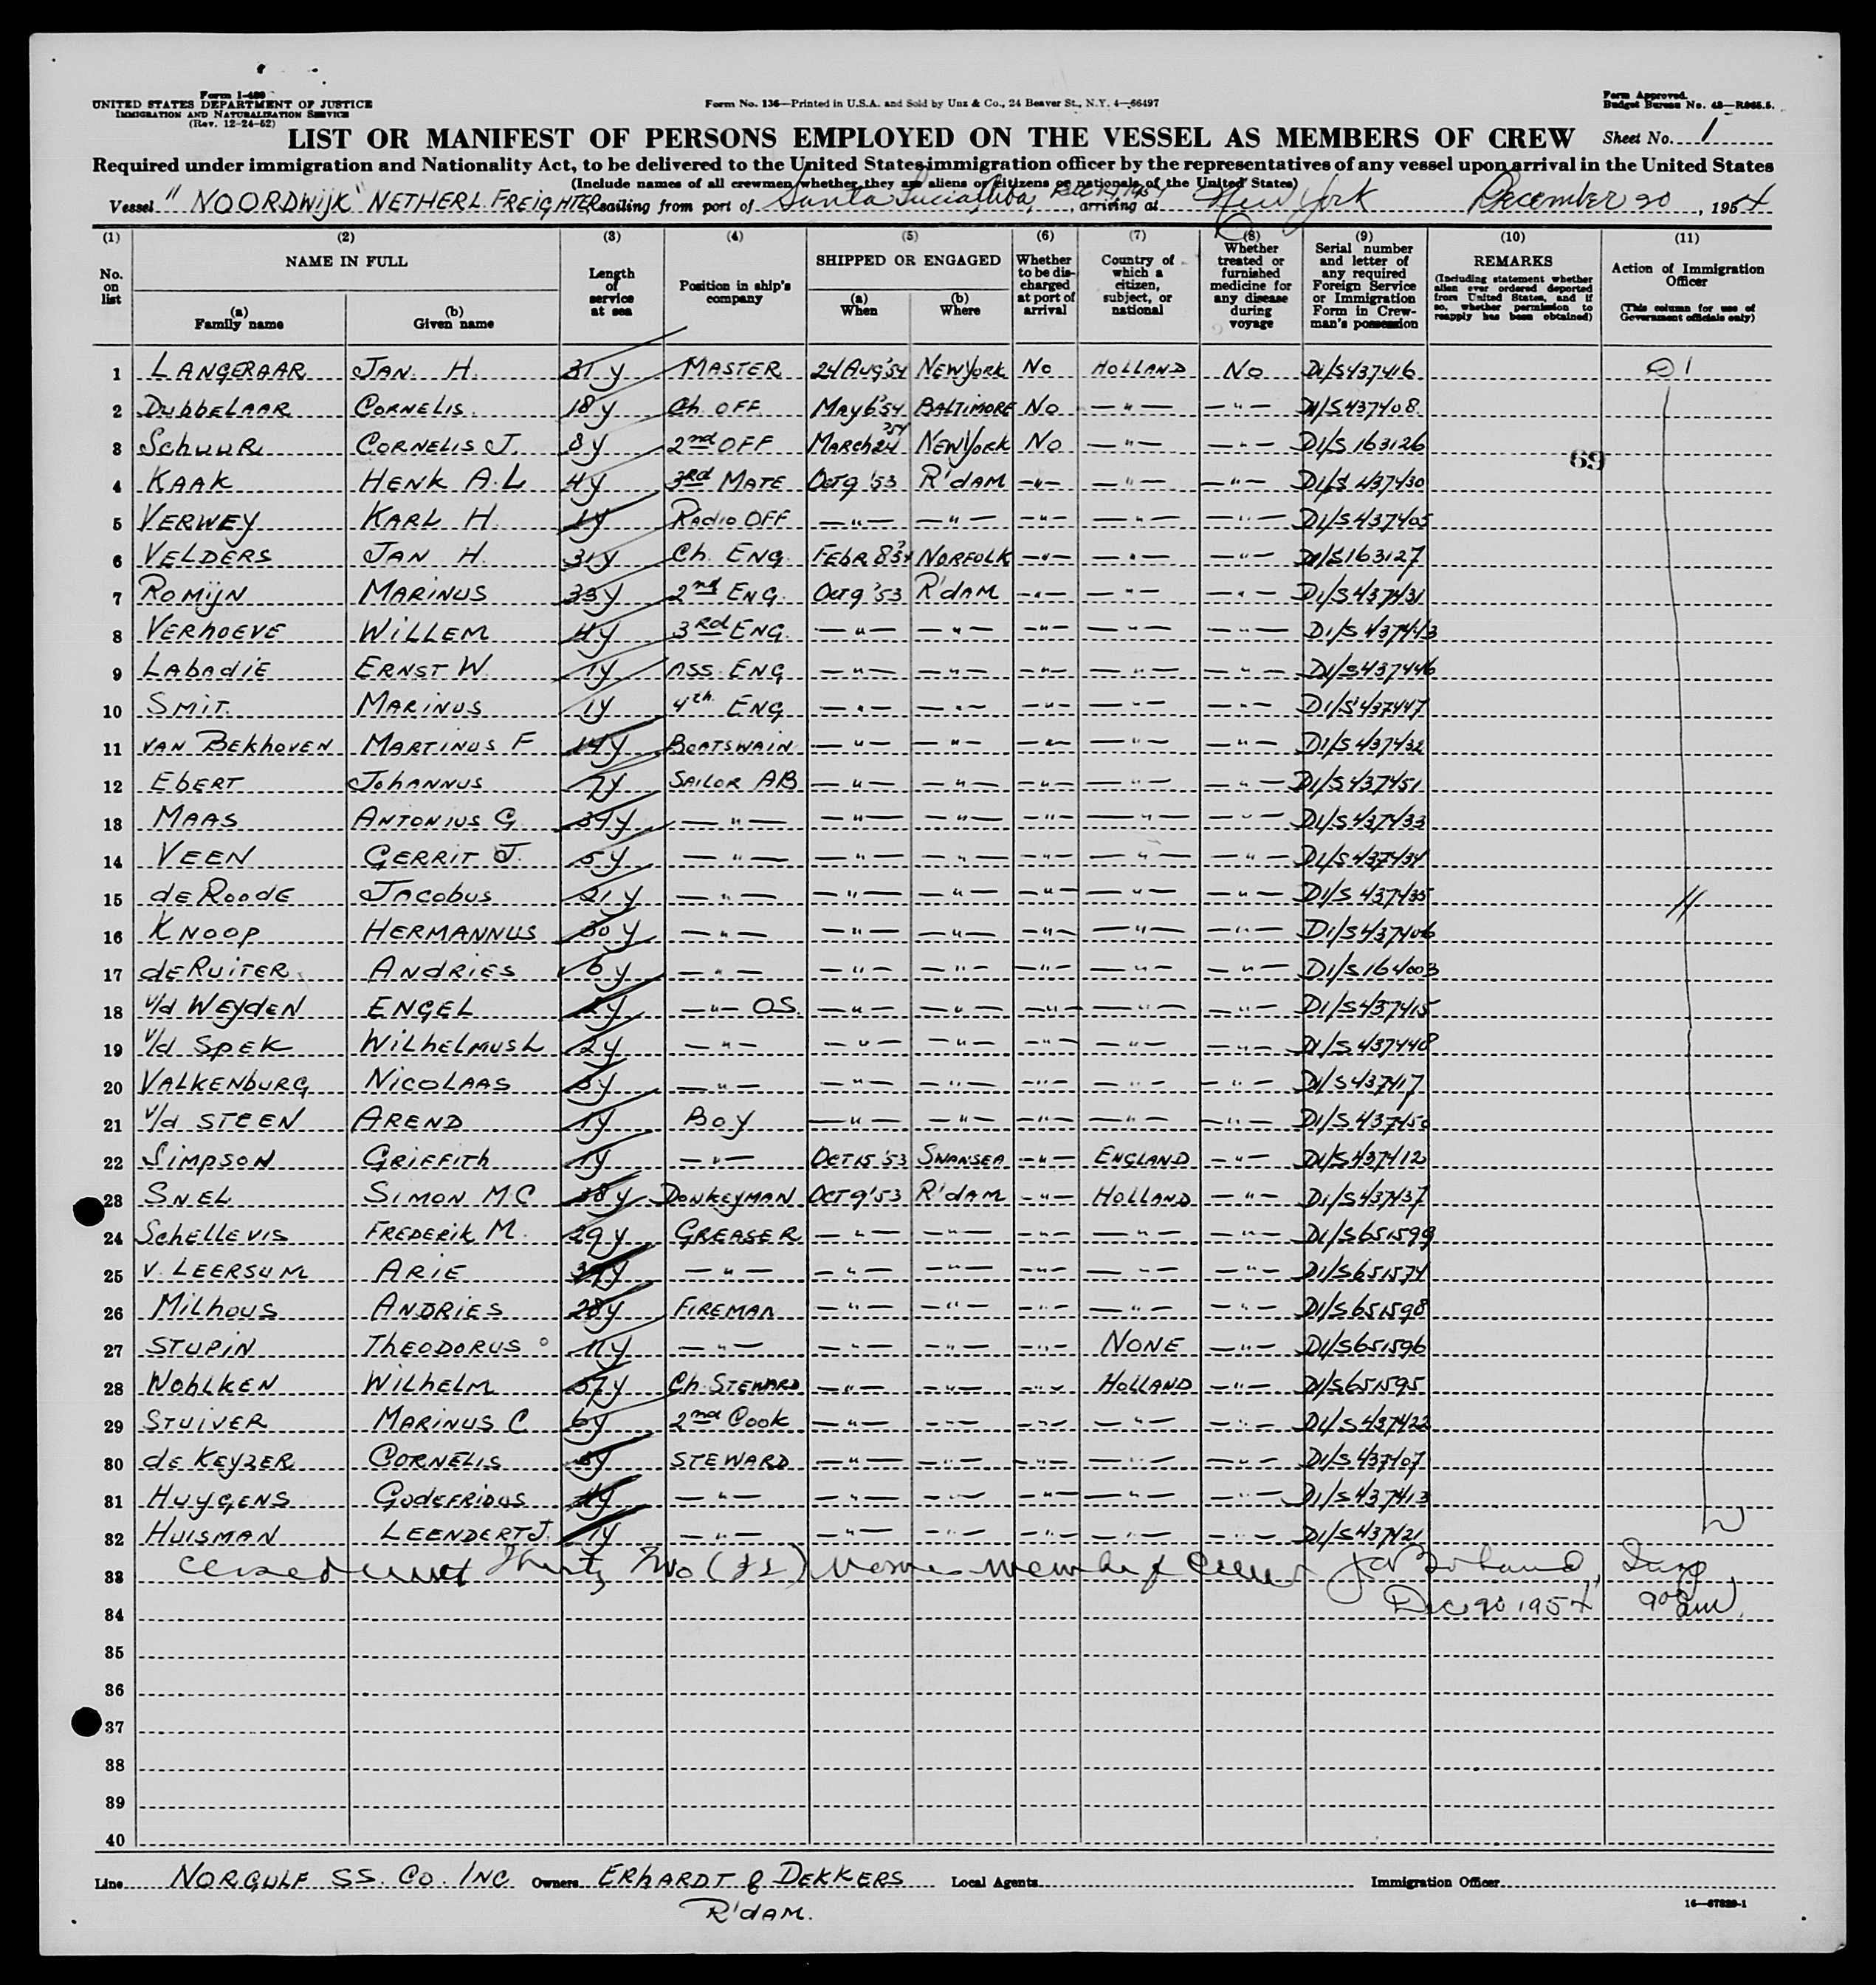 Form I-480
UNITED STATES DEPARTMENT OF JUSTICE
IMMIGRATION AND NATURALIZATION SERVICE
(Rev. 12-24-52)
Form No. 136—Printed in U.S.A. and Sold by Unz & Co., 24 Beaver St., N.Y. 4—66497
Form Approved.
Budget Bureau No. 43—R065.5.
LIST OR MANIFEST OF PERSONS EMPLOYED ON THE VESSEL AS MEMBERS OF CREW Sheet No. 1
Required under immigration and Nationality Act, to be delivered to the United States immigration officer by the representatives of any vessel upon arrival in the United States
(Include names of all crewmen whether they are aliens or citizens or nationals of the United States)
Vessel "NOORDWIJK" NETHERL. FREIGHTER sailing from port of Santa Lucia, Cuba, arriving at New York December 20, 1954
(1) (2) (3) (4) (5) (6) (7) (8) (9) (10) (11)
No. on list
NAME IN FULL
(a) Family name
(b) Given name
Length of service at sea
Position in ship's company
SHIPPED OR ENGAGED
(a) When
(b) Where
Whether to be discharged at port of arrival
Country of which a citizen, subject, or national
Whether treated or furnished medicine for any disease during voyage
Serial number and letter of any required Foreign Service or Immigration Form in Crewman's possession
REMARKS
(Including statement whether alien ever ordered deported from United States, and if so, whether permission to reapply has been obtained)
Action of Immigration Officer
(This column for use of Government officials only)
1 LANGERAAR JAN. H. 31 y MASTER 24 AUG'54 NEW YORK No HOLLAND No D1/S437416
2 DUBBELAAR CORNELIS 18 y Ch. OFF MAY 6'54 BALTIMORE No — " — — " — D1/S437408
3 SCHUUR CORNELIS J. 8 y 2nd OFF MARCH 24 '54 NEW YORK No — " — — " — D1/S 163126
69
4 KAAK HENK A.L 4 y 3RD MATE OCT 9 '53 R'DAM — " — — " — — " — D1/S 437430
5 VERWEY KARL H. 1 y RADIO OFF — " — — " — — " — — " — — " — D1/S437405
6 VELDERS JAN H. 31 y Ch. ENG. FEBR 8 '54 NORFOLK — " — — " — — " — D1/S163127
7 ROMIJN MARINUS 33 y 2nd ENG. OCT 9 '53 R'DAM — " — — " — — " — D1/S437431
8 VERHOEVE WILLEM 4 y 3RD ENG. — " — — " — — " — — " — — " — D1/S437443
9 LABADIE ERNST W. 1 y ASS. ENG — " — — " — — " — — " — — " — D1/S437446
10 SMIT. MARINUS 1 y 4th ENG — " — — " — — " — — " — — " — D1/S437447
11 VAN BEKHOVEN MARTINUS F 14 y BOATSWAIN — " — — " — — " — — " — — " — D1/S437432
12 EBERT JOHANNUS 7 y SAILOR AB — " — — " — — " — — " — — " — D1/S437451
13 MAAS ANTONIUS G. 37 y — " — — " — — " — — " — — " — — " — D1/S437433
14 VEEN GERRIT J. 5 y — " — — " — — " — — " — — " — — " — D1/S437434
15 de ROODE JACOBUS 21 y — " — — " — — " — — " — — " — — " — D1/S 437435
16 KNOOP HERMANNUS 30 y — " — — " — — " — — " — — " — — " — D1/S437406
17 de RUITER ANDRIES 6 y — " — — " — — " — — " — — " — — " — D1/S164003
18 v/d WEYDEN ENGEL 2 y — " — OS. — " — — " — — " — — " — — " — D1/S437415
19 v/d SPEK WILHELMUS L 2 y — " — — " — — " — — " — — " — — " — D1/S437448
20 VALKENBURG NICOLAAS 3 y — " — — " — — " — — " — — " — — " — D1/S437417
21 v/d STEEN AREND 1 y BOY — " — — " — — " — — " — — " — D1/S437450
22 SIMPSON GRIFFITH 1 y — " — OCT 15 '53 SWANSEA — " — ENGLAND — " — D1/S437412
23 SNEL SIMON M C 38 y DONKEYMAN OCT 9 '53 R'DAM — " — HOLLAND — " — D1/S437437
24 SCHELLEVIS FREDERIK M. 29 y GREASER — " — — " — — " — — " — — " — D1/S651599
25 V. LEERSUM ARIE y — " — — " — — " — — " — — " — — " — D1/S651574
26 MILHOUS ANDRIES 28 y FIREMAN — " — — " — — " — — " — — " — D1/S651598
27 STUPIN THEODORUS 11 y — " — — " — — " — — " — NONE — " — D1/S651596
28 WOHLKEN WILHELM 37 y Ch. STEWARD — " — — " — — " — HOLLAND — " — D1/S651595
29 STUIVER MARINUS C 6 y 2nd COOK — " — — " — — " — — " — — " — D1/S437422
30 de KEYZER CORNELIS y STEWARD — " — — " — — " — — " — — " — D1/S437407
31 HUYGENS GODEFRIDUS y — " — — " — — " — — " — — " — — " — D1/S437413
32 HUISMAN LEENDERT J. 1 y — " — — " — — " — — " — — " — — " — D1/S437421
33 Thirty Two (32) crew
34 Dec 20 1954 9 am
35
36
37
38
39
40
Line NORGULF SS. CO. INC Owners ERHARDT & DEKKERS Local Agents Immigration Officer
R'DAM.
16—67829-1